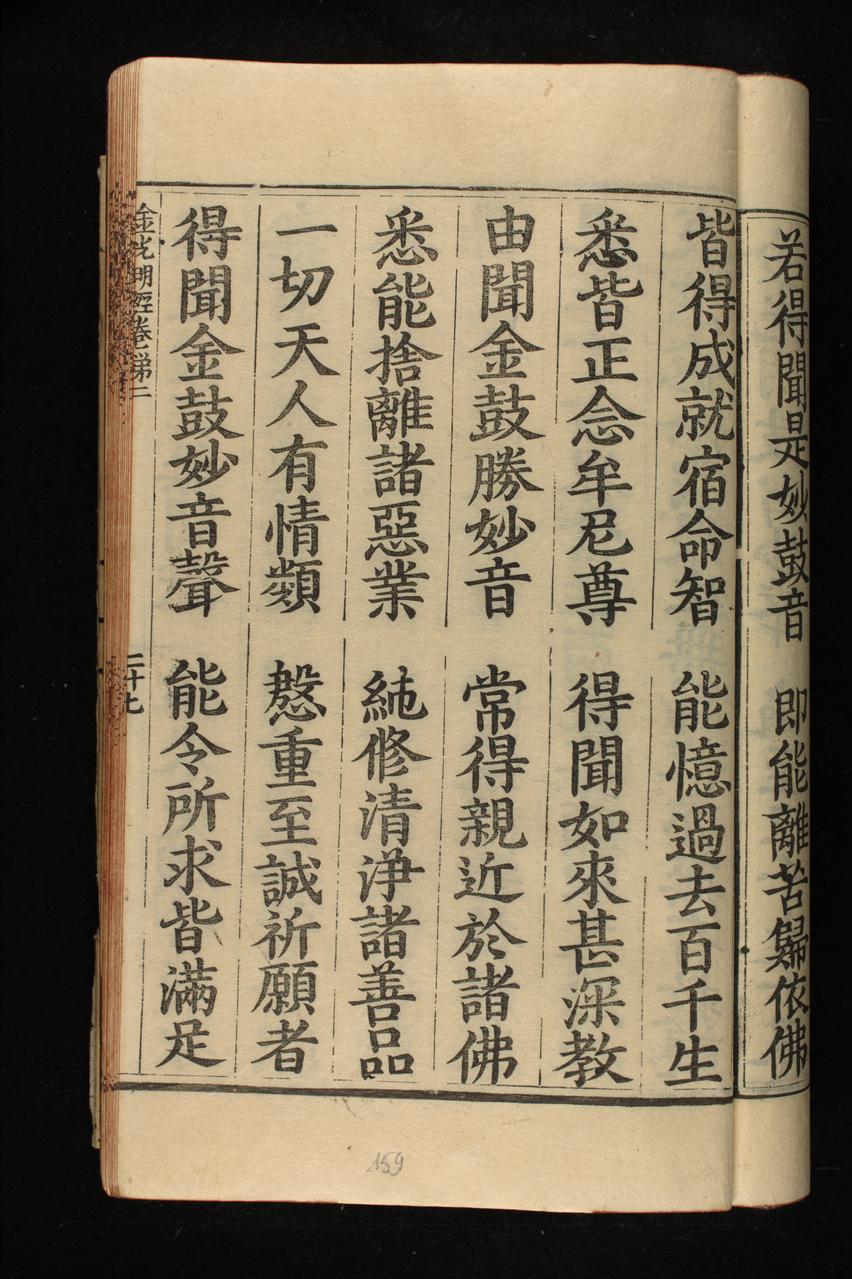 若得聞是妙鼓音 即能離苦歸依佛
皆得成就宿命智 能憶過去百千生
悉皆正念牟尼尊 得聞如來甚深教
由聞金鼓勝妙音 常得親近於諸佛
悉能捨離諸惡業 純修清淨諸善品
一切天人有情類 慇重至誠祈願者
得聞金鼓妙音聲 能令所求皆滿足
金光明經卷第二 二十七
159